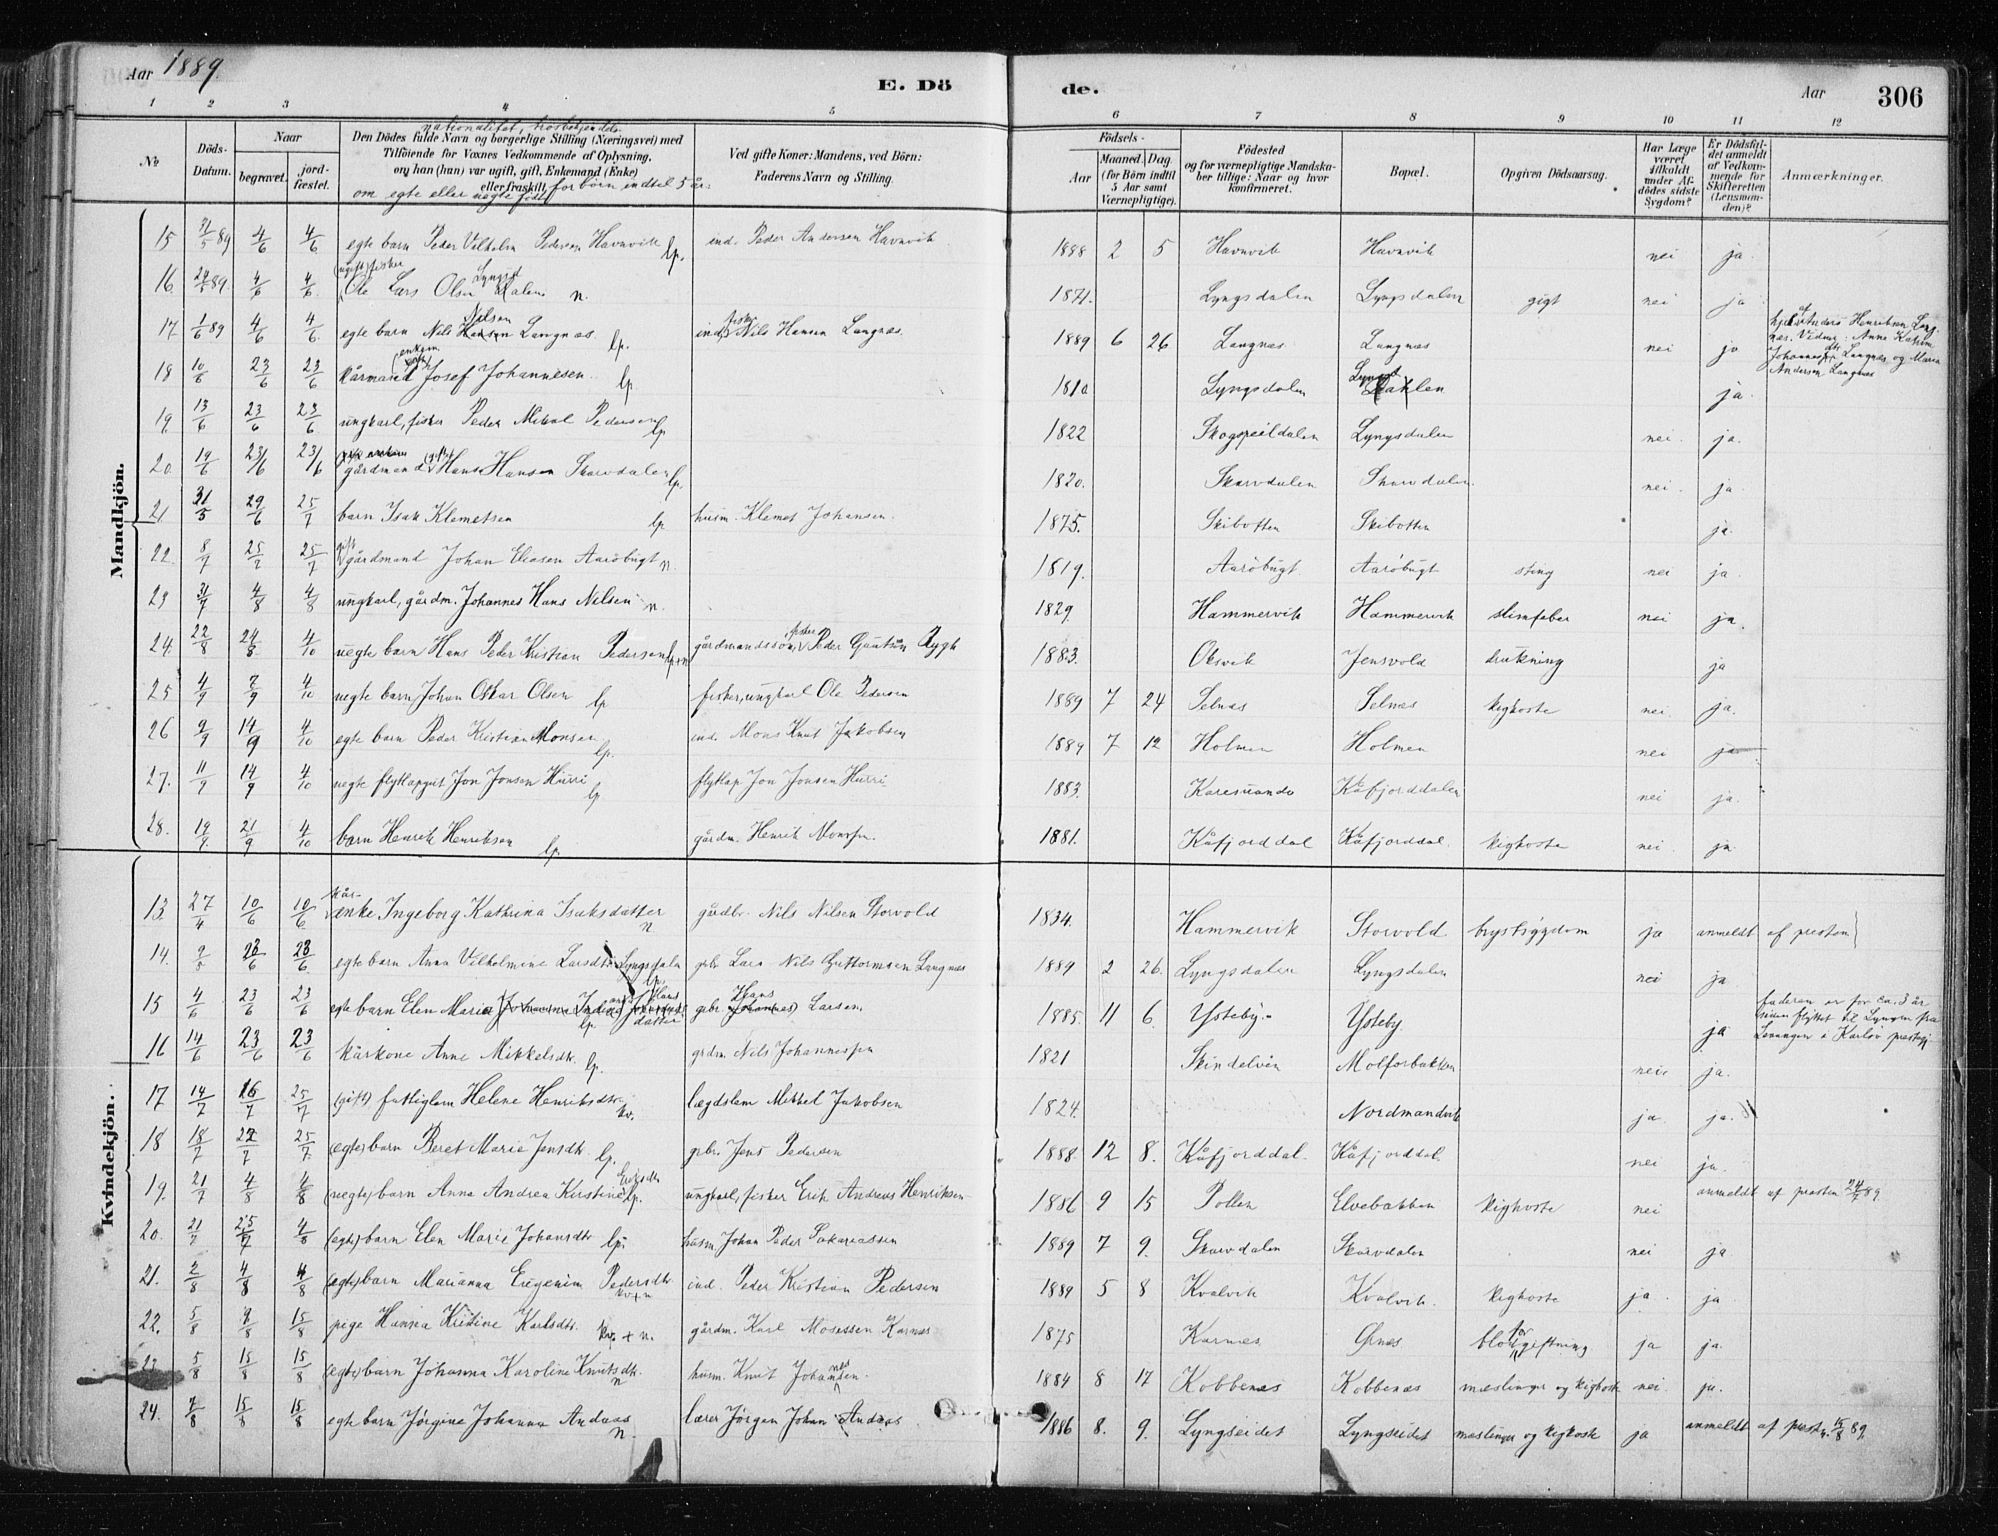 Aar 1889.
E. Dö de.
Aar 306
1 2 3 4 5 6 7 8 9 10 11 12
No
Döds-Datum.
Naar
begravet.
jord-fæstet.
nationalitet, trosbekjendelse
Den Dödes fulde Navn og borgerlige Stilling (Næringsvei) med
Tilföiende for Voxnes Vedkommende af Oplysning,
om han (hun) var ugift, gift, Enkemand (Enke)
eller fraskilt,
om egte eller uegte født for børn indtil 5 år:
Ved gifte Koner: Mandens, ved Börn:
Faderens Navn og Stilling.
Födsels-
Aar
Maaned. Dag.
(for Börn indtil
5 Aar samt
Værnepligtige).
Födested
og for værnepligtige Mandska-
ber tillige: Naar og hvor
konfirmeret.
Bopæl.
Opgiven Dödsaarsag.
Har Læge
været
tilkaldt
under Af-
dödes sidste
Sygdom?
Er Dödsfal-
det anmeldt
af Vedkom-
mende for
Skifteretten
(Lensman-
den)?
Anmærkninger.
Mandkjön.
15 31/5 89 4/6 4/6 egte barn Peder Vilhelm Pedersen Havnvik lp. ind. Peder Andersen Havnvik 1888 2 5 Havnvik Havnvik nei ja.
16. 24/5 89. 4/6 4/6. (ugift) fisker Ole Lars Olsen Lyngsdalen n. 1871. Lyngsdalen Lyngsdalen gigt nei ja
17. 1/6 89 4/6 4/6. egte barn Nils Hansen Nilsen Langnæs. lp. ind., fisker Nils Hansen Langnæs. 1889 6 26 Langnæs Langnæs nei ja
Anders Henriksen Lang
næs. Vidner: Anna Katrin
Johannesdtr. Langnæs og Maren
Andersen Langnæs
18 10/6 23/6 23/6 kårmand (enkem) Josef Johannesen. lp 1810 Lyngsdalen Lyngsdalen ja.
19. 13/6 23/6 23/6. ungkarl, fisker Peder Mikal Pedersen lp 1822 Skogpeildalen Lyngsdalen nei. ja.
20. 19/6 23/6 23/6 gårdmand (gift) Hans Hansen Skarvdalen lp. 1820. Skarvdalen Skarvdalen. nei. ja
21 31/5 29/6 25/7 barn Isak Klemetsen lp husm. Klemet Johansen. 1875. Skibotten Skibotten ja.
22. 8/7 25/7 25/7 gift gårdmand Johan Eliasen Aarøbugt n. 1819. Aarøbugt Aarøbugt sting nei ja.
23 31/7 4/8 4/8 ungkarl, gårdm. Johannes Hans Nilsen n. 1829. Hammervik Hammervik slimfeber nei ja.
24. 22/8 24/8 4/10 uegte barn Hans Peder Kristian Pedersen lp+n gårdmandssøn, fisker Peder Rygh 1883. Oksvik Jensvold drukning ja
25 4/9 7/9 4/10 uegte barn Johan Oskar Olsen lp fisker, ungkarl Ole Pedersen 1889 7 24 Selnæs Selnæs kighoste nei. ja.
26 9/9 14/9 4/10 egte barn Peder Kristian Monsen lp. ind. Mons Knut Jakobsen 1889 7 12 Holmen Holmen nei ja
27. 11/9 14/9 4/10 uegte flytlapgut Jon Jonsen Hurri lp flytlap Jon Jonsen Hurri 1883. Karesuando Kåfjorddalen nei ja.
28. 19/9. 21/9 4/10 barn Henrik Henriksen lp. gårdm. Henrik Monsen. 1881. Kåfjorddal Kåfjorddal. kighoste nei. ja.
Kvindekjön.
13. 27/4 10/6 10/6 kårenke Ingeborg Kathrina Isaksdatter n gårdbr. Nils Nilsen Storvold 1834. Hammervik Storvold brystsygdom ja anmeldt af presten
14. 23/6 23/6. egte barn Anna Vilhelmine Larsdtr Lyngsdalen lp. gbr. Lars Nils Guttormsen Langnæs 1889 2 26. Lyngsdalen Lyngsdalen nei ja
15 4/6 23/6 23/6 egte barn Elen Maria Hansdatter lp. gbr. Hans Larsen 1885. 11 6. Ysteby. Ysteby. ja
faderen er for ca. 3 år
siden flyttet til Lyngen fra
i Karlsø prestegj
16 14/6 23/6 23/6 kårkone Anne Mikkelsdtr. lp. grdm. Nils Johannessen 1821 Skindelven Molforbakken nei ja.
17 14/7 16/7 25/7 (gift) fattiglem Helene Henriksdtr. kv. lægdslem Mikkel Jakobsen 1824. Nordmandvik ja ja.
18 18/7 22/7 25/7 (egte) barn Beret Marie Jensdtr. lp. gbr. Jens Pedersen 1888. 12 8. Kåfjorddal. Kåfjorddal. nei ja.
19. 21/7 4/8 4/8 (uegte) barn Anna Andrea Kirstine Eriksdtr lp. ungkarl, fisker Erik Andreas Henriksen 1886 9 15 Pollen Elvebakken kighoste nei anmeldt af presten 24/7 89
20. 21/7 25/7 4/8 (egte) barn Elen Marie Johansdtr lp. husm. Johan Peder Sakariassen 1889 7 9. Skarvdalen Skarvdalen nei ja
21. 2/8 4/8 4/8 (egte) barn Marianna Eugenim Pedersdtr kv+n ind. Peder Kristian Pedersen 1889 5 8 Kvalvik Kvalvik. kighoste ja. ja
22. 5/8 9/8 15/8 pige Hanna Kristine Karlsdtr. kv. + n. gårdm. Karl Mosessen Karnæs 1875 Karnæs Ørnæs blodforgiftning ja ja.
23 5/8 15/8 15/8 (egte) barn Johanna Karoline Knutsdtr. n husm. Knut Johannesen. 1884 8 17 Kobbenæs Kobbenæs mæslinger og kighoste nei. ja.
24. 7/8 15/8 15/8 egte barn Jørgine Johanna Andaas n. lærer Jørgen Johan Andaas 1886 8. 9. Lyngseidet Lyngseidet mæslinger og kighoste ja anmeldt af prest. 15/8 89.